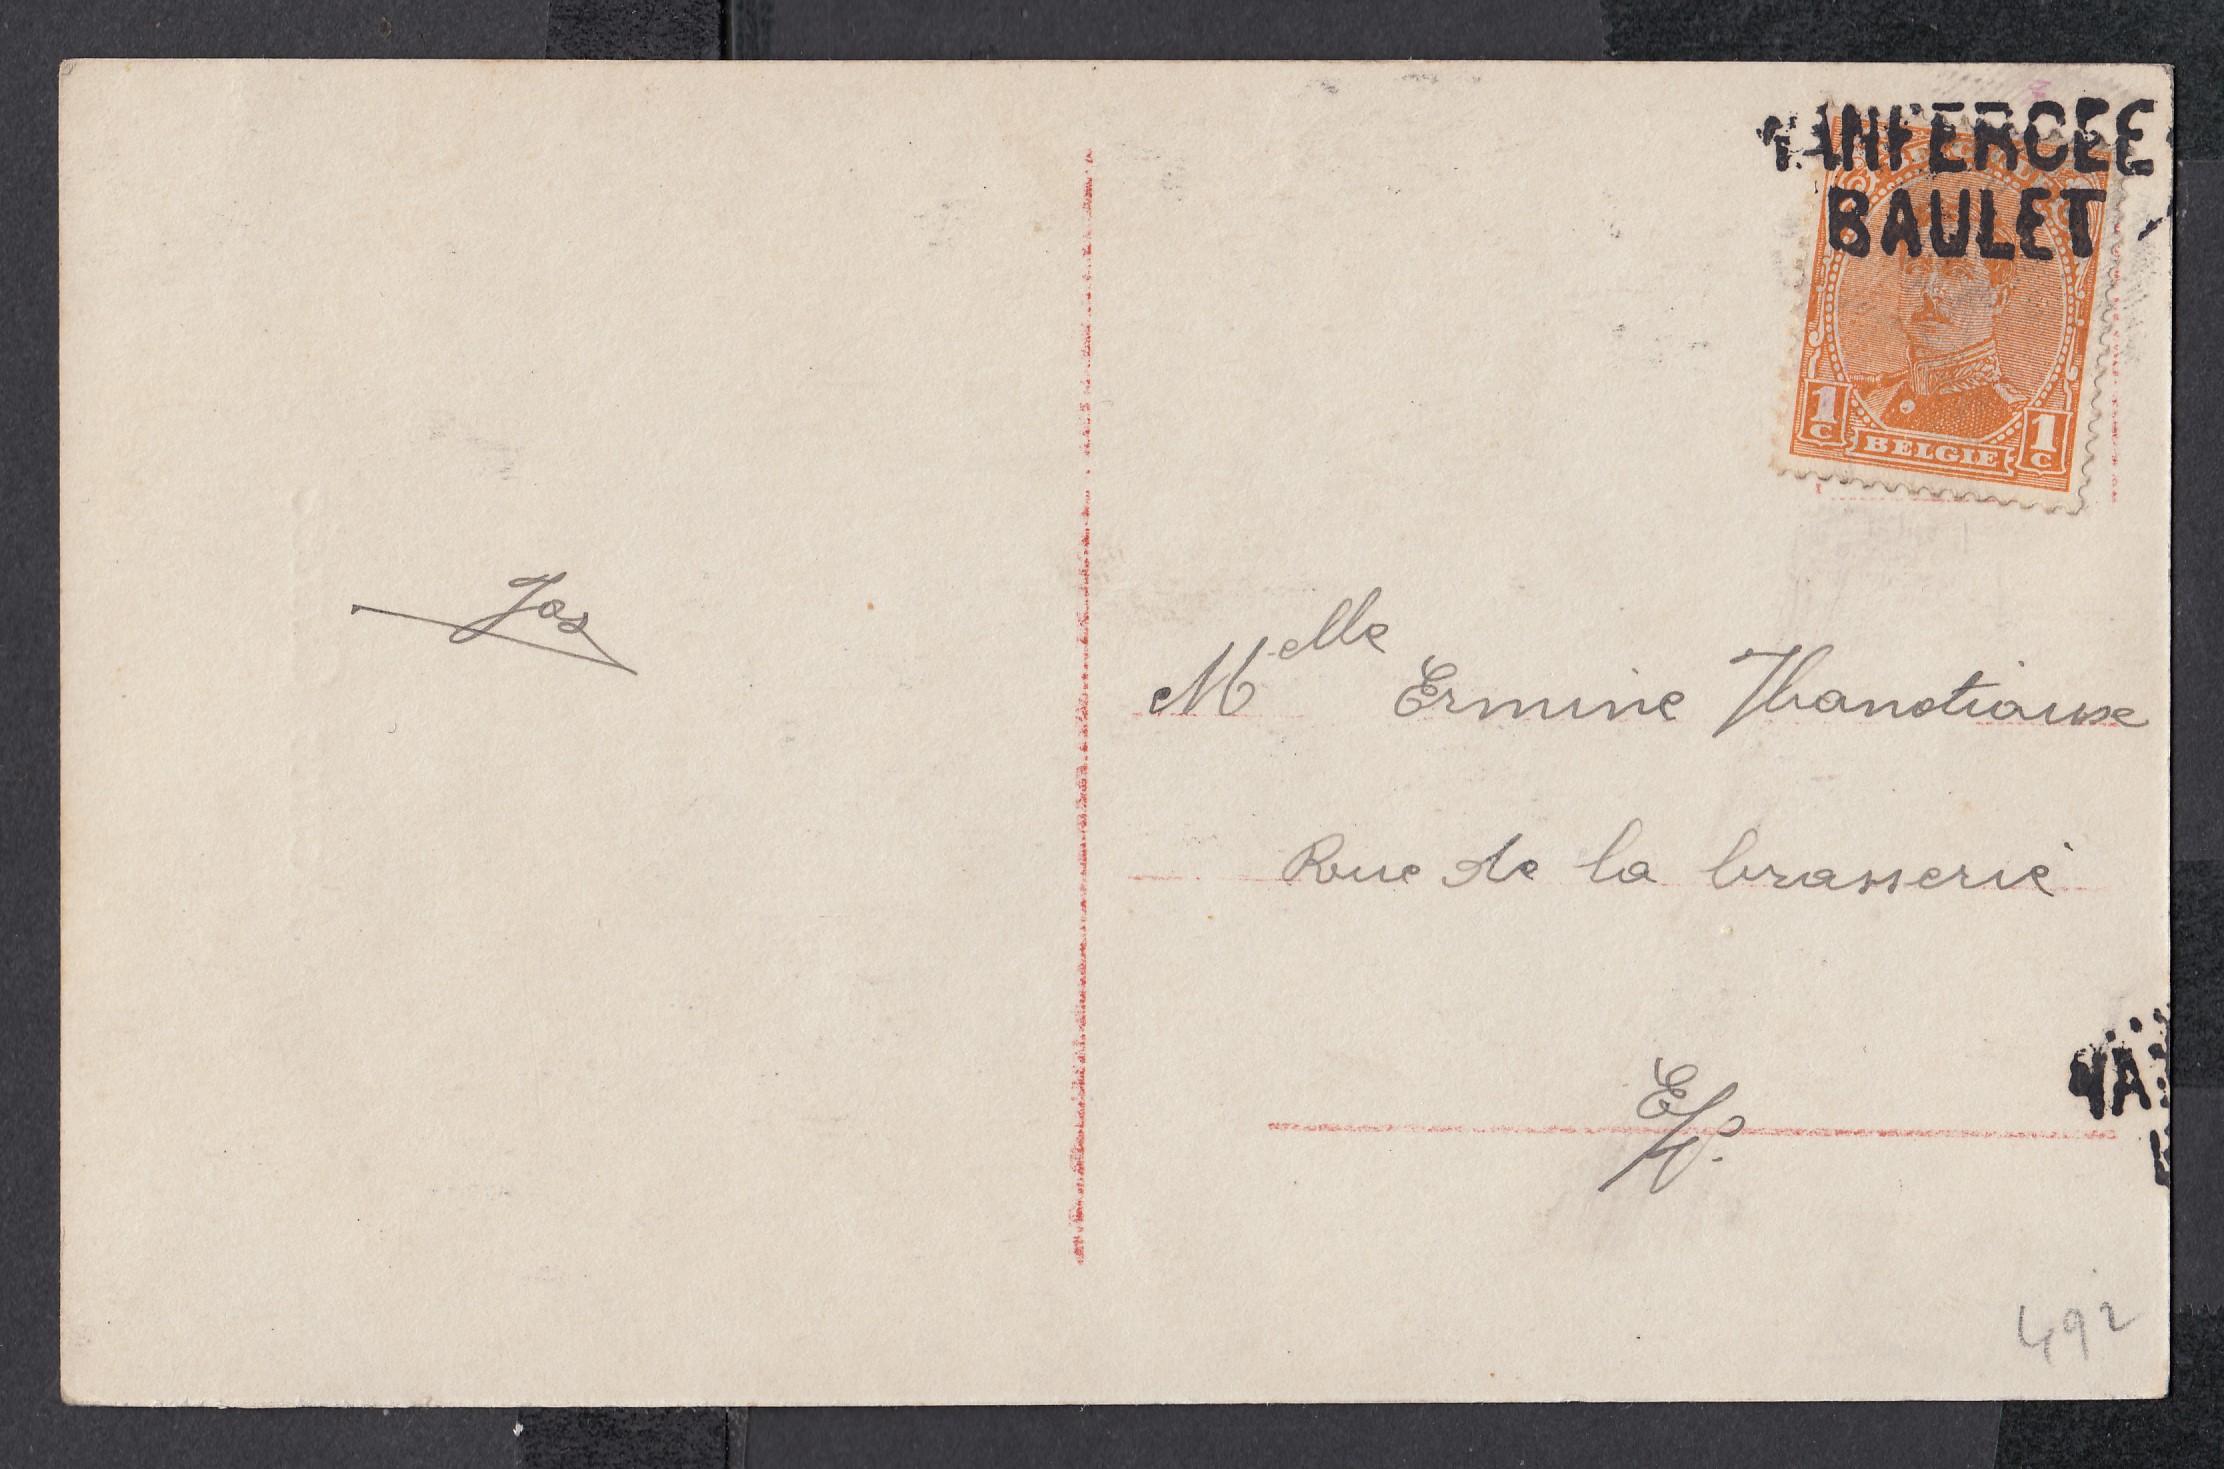 WANFERCEE
BAULET
1
C
BELGIE
1
C
Jos
Melle Ermine
Rue de la brasserie
E/V.
WA
492